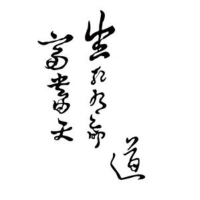 生死有命
富貴天
道